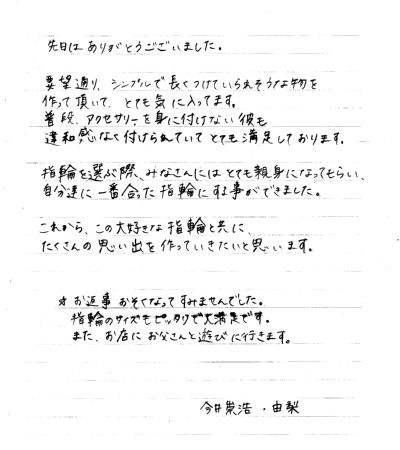 先日は ありがとうございました。
要望通り、シンプルで長くつけていられそうな物を
作って頂いて、とても気に入ってます。
普段、アクセサリーを身に付けない彼も
違和感なく付けられていてとても満足しております。
指輪を選ぶ際、みなさんにはとても親身になってもらい、
自分達に一番合った指輪にする事ができました。
これから、この大好きな指輪と共に、
たくさんの思い出を作っていきたいと思います。
☆お返事おそくなってすみませんでした。
指輪のサイズもピッタリで大満足です。
また、お店にお父さんと遊びに行きます。
今井崇浩・由梨